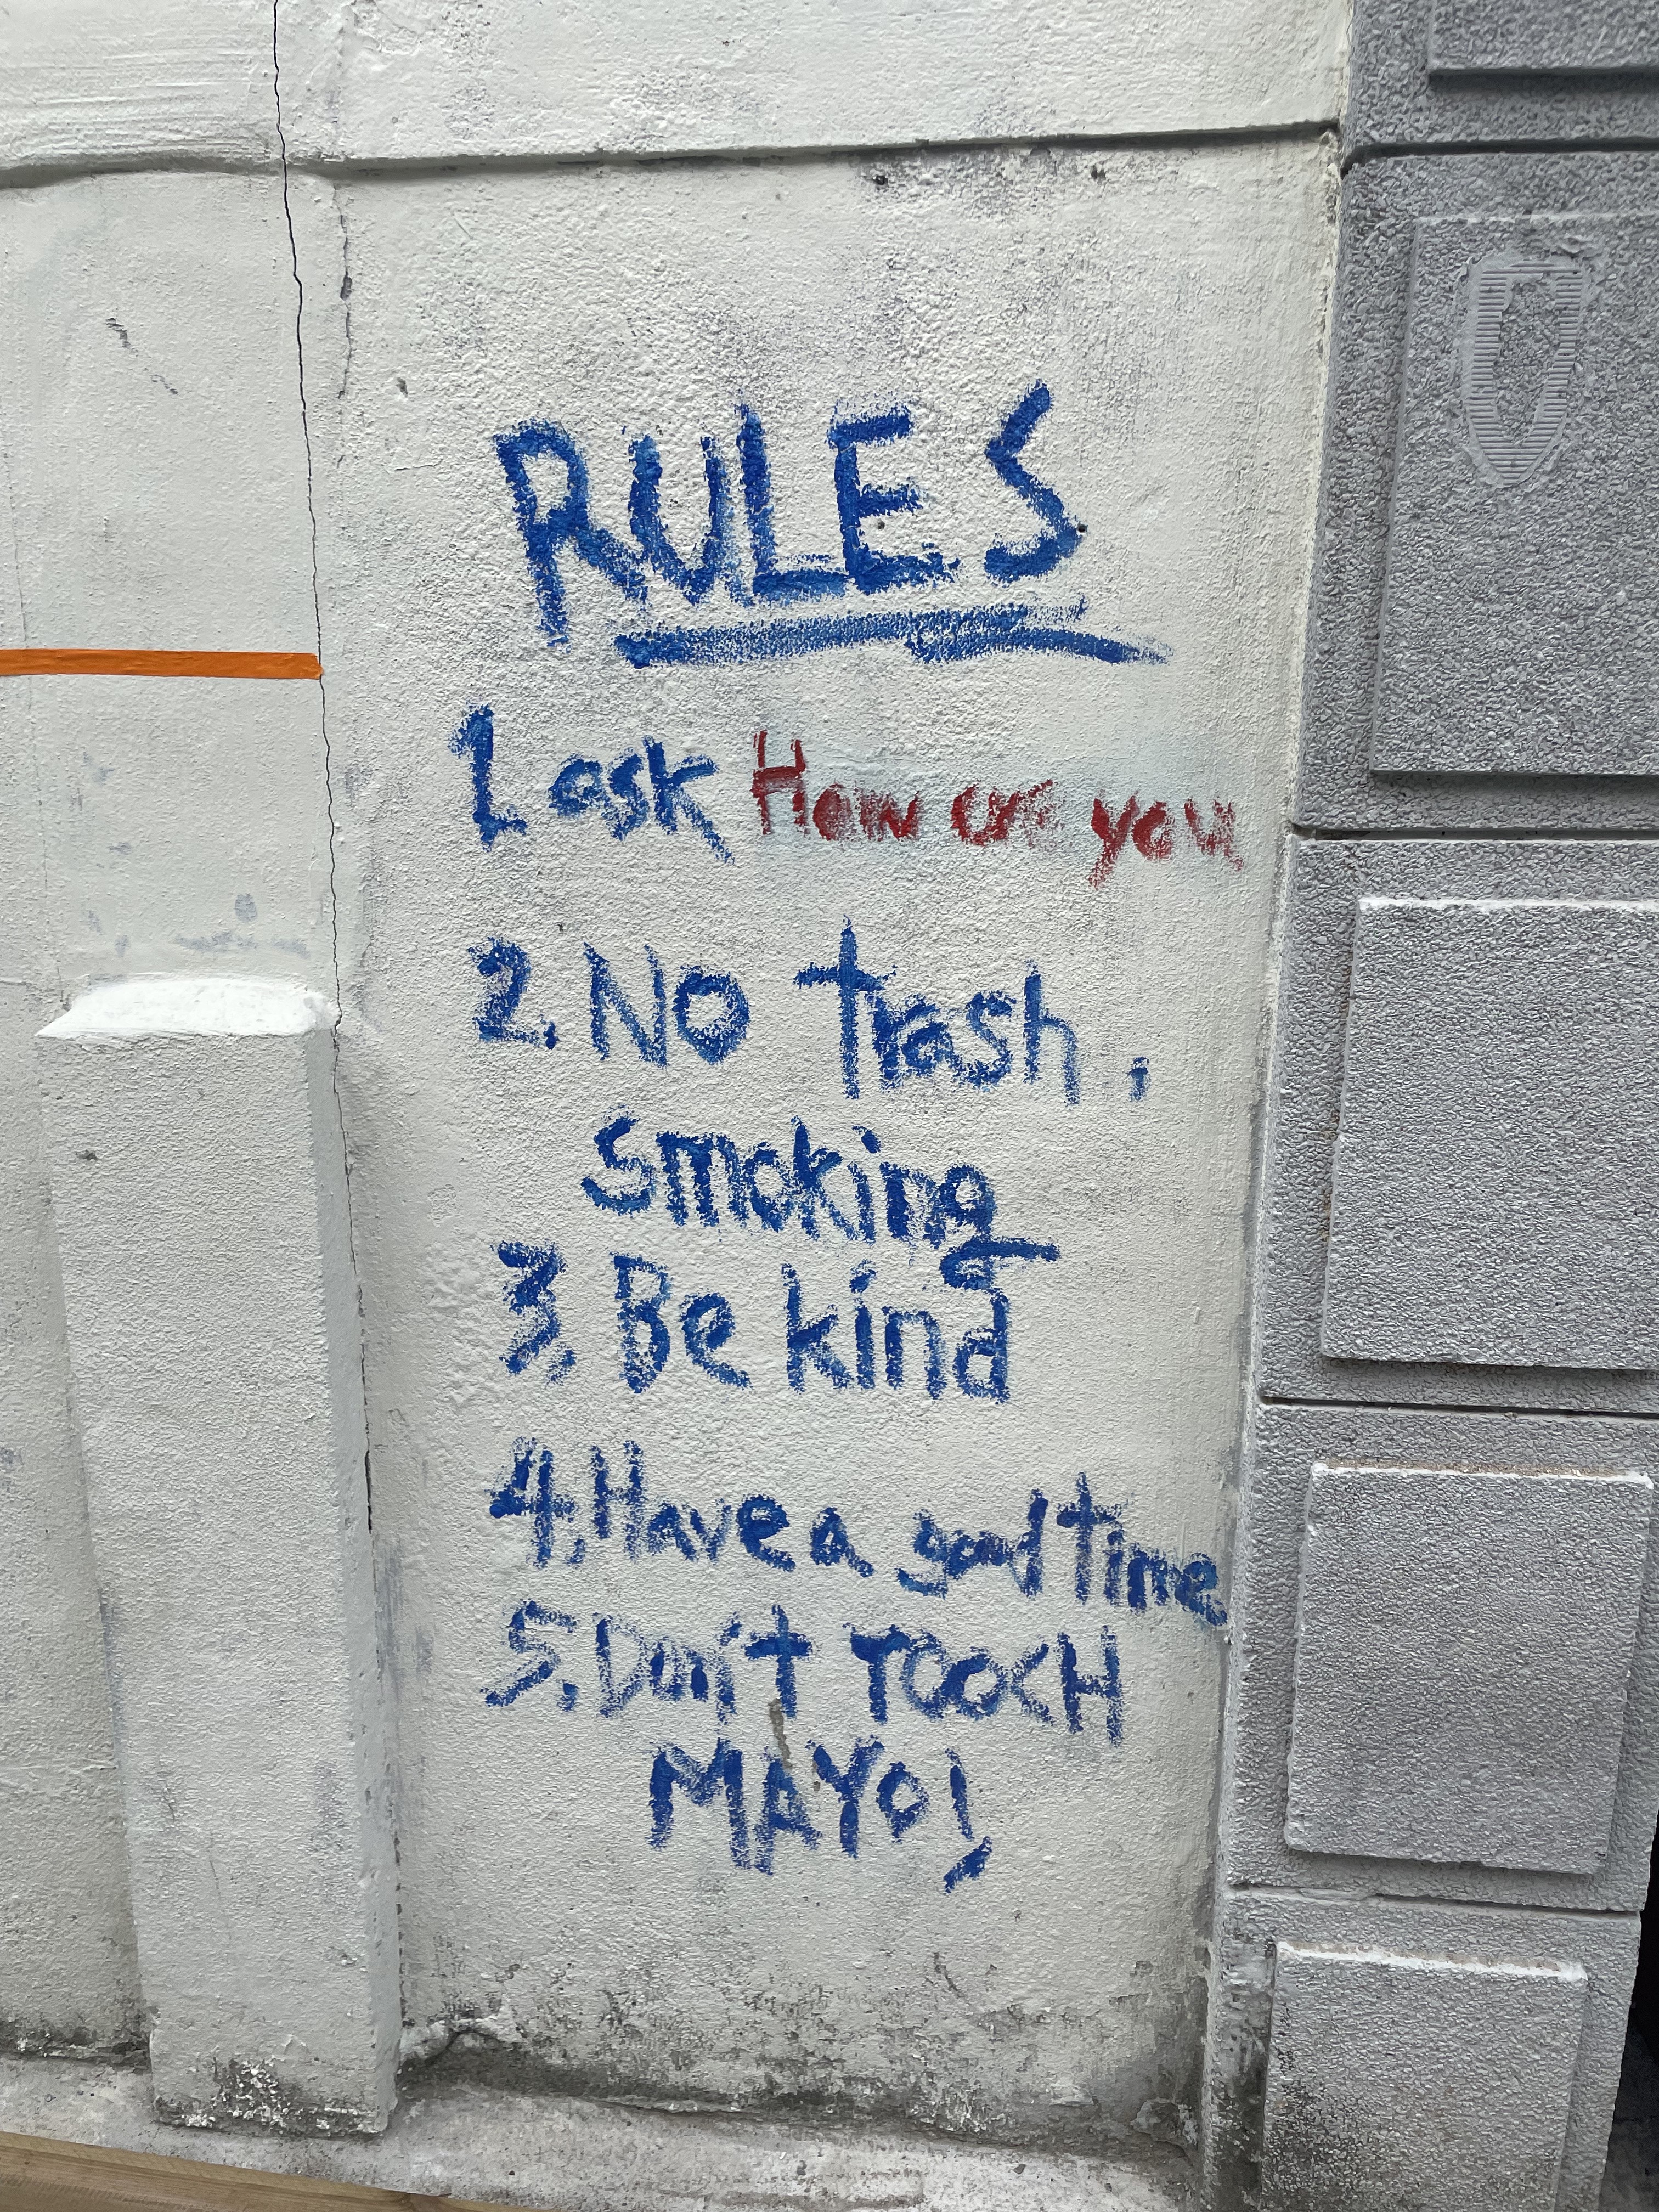 RULES
1. ask How are you
2. NO trash,
smoking
3. Be kind
4. Have a good time
5. Don't TOOCH
MAYO!